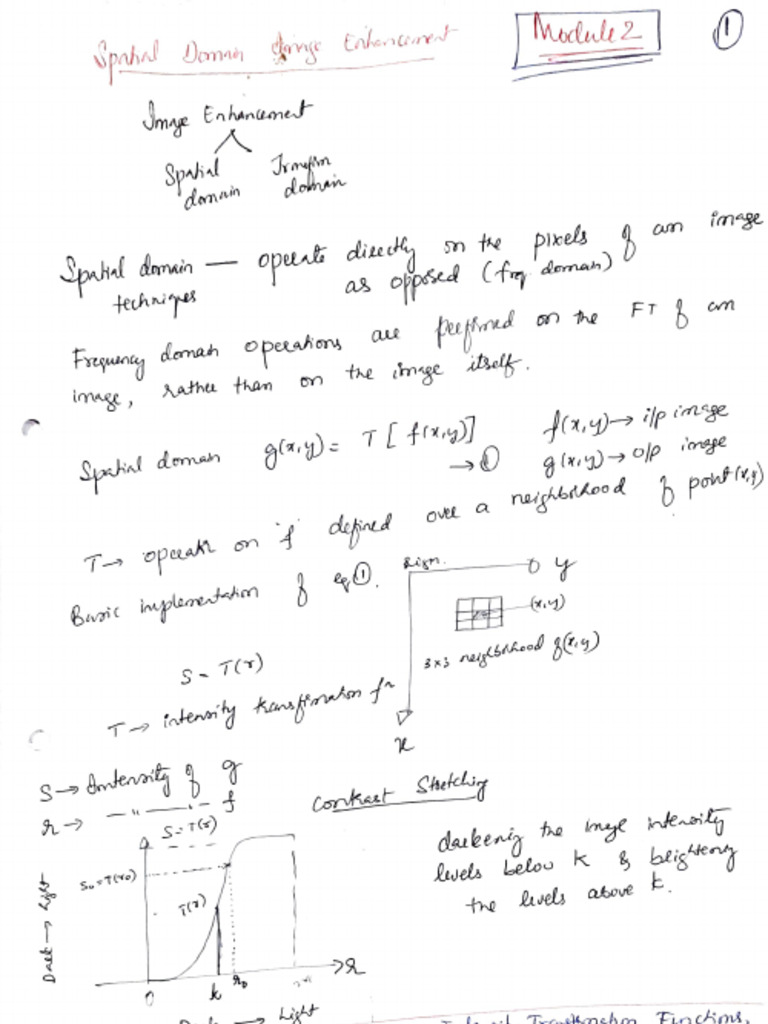 Spatial Domain Image Enhancement
Module 2
1
Image Enhancement
Spatial domain
Transfrm domain
Spatial domain — operate directly on the pixels of an image
techniques as opposed (frq. domain)
Frequency domain operations are perfrmed on the FT of an
image, rather than on the image itself.
Spatial domain g(x,y) = T [f(x,y)] → ①
f(x,y) → i/p image
g(x,y) → o/p image
T → operatr on 'f' defined over a neighborhood of point (x,y)
Basic implementation of eq ①.
origin.
y
(x,y)
3×3 neighborhood of (x,y)
x
S = T(r)
T → intensity transfrmation fn
S → Intensity of g
r → — " — f
Contrast Stretching
darkening the image intensity
levels below k & brightening
the levels above k.
S = T(r)
S₀ = T(r₀)
T(r)
Dark → Light
0 k r₀
r
Dark → Light
Transformation Functions.